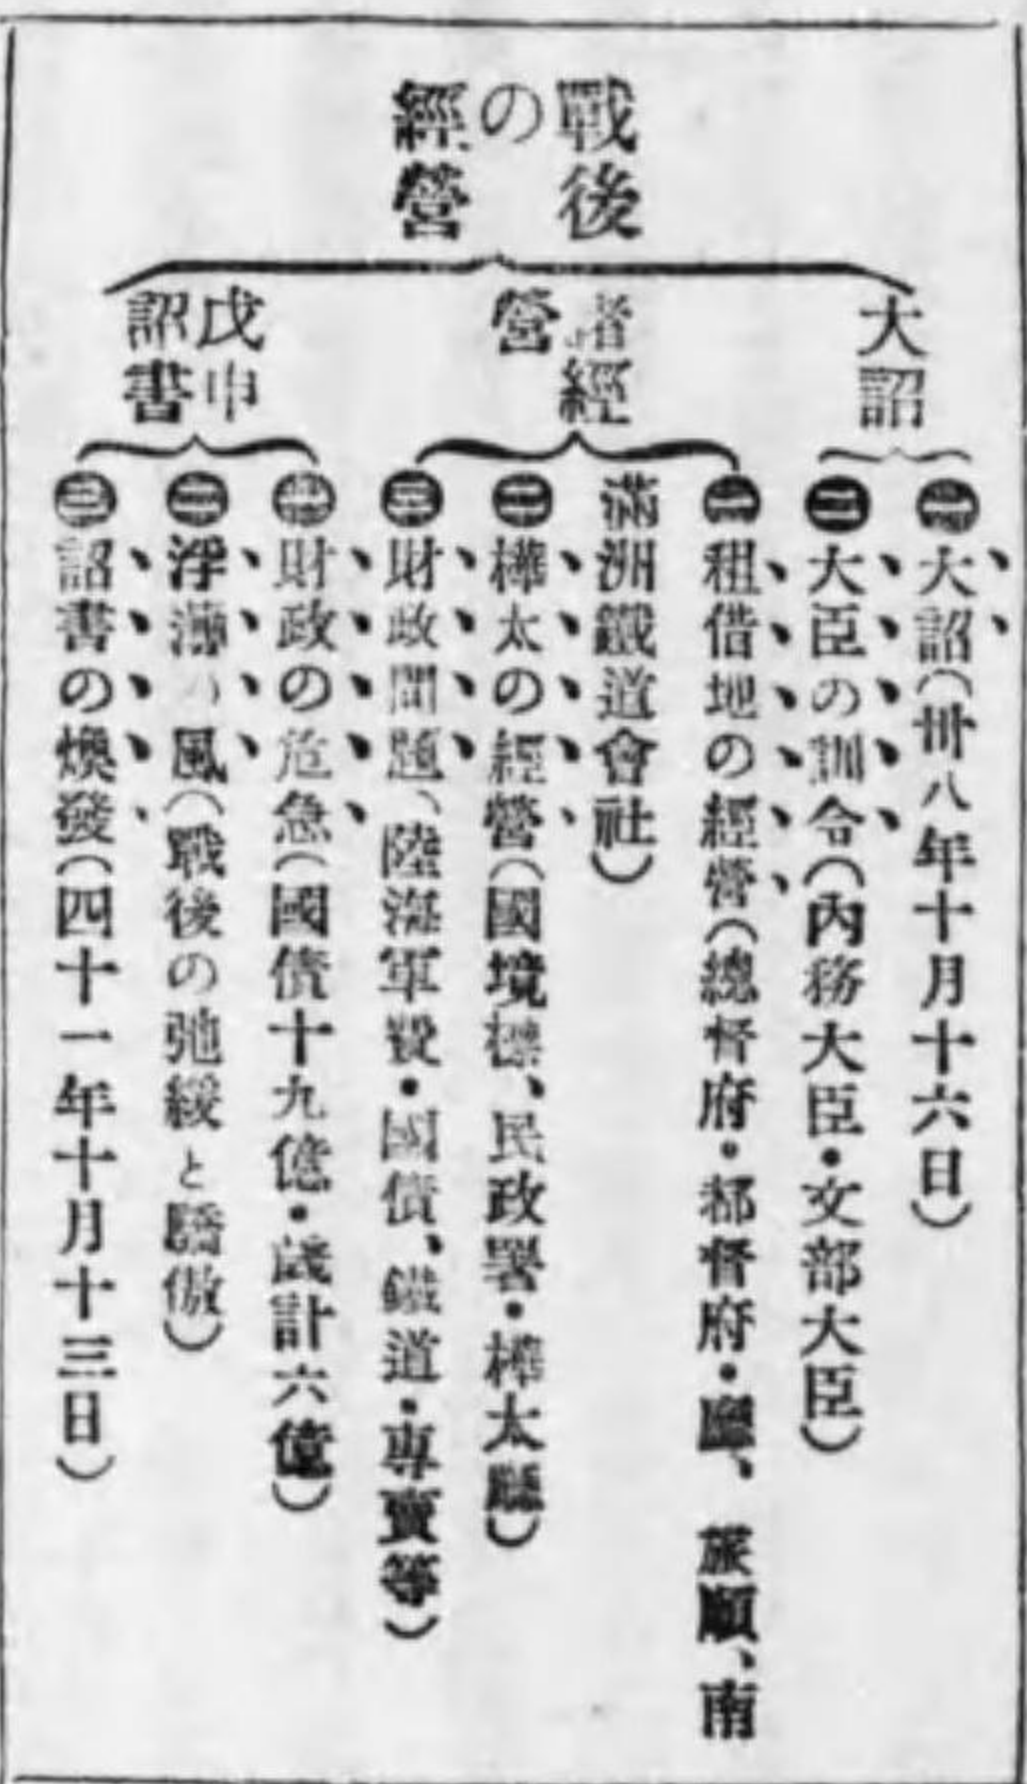 戰後
の
經營
大詔
㊀大詔(卅八年十月十六日)
㊁大臣の訓令(內務大臣・文部大臣)
諸經
營
㊀租借地の經營(總督府・都督府・廳、旅順、南
滿洲鐵道會社)
㊁樺太の經營(國境標、民政署・樺太廳)
㊂財政問題(陸海軍費・國債、鐵道・專賣等)
戊申
詔書
㊀財政の危急(國債十九億・歲計六億)
㊁浮薄の風(戰後の弛緩と驕傲)
㊂詔書の煥發(四十一年十月十三日)